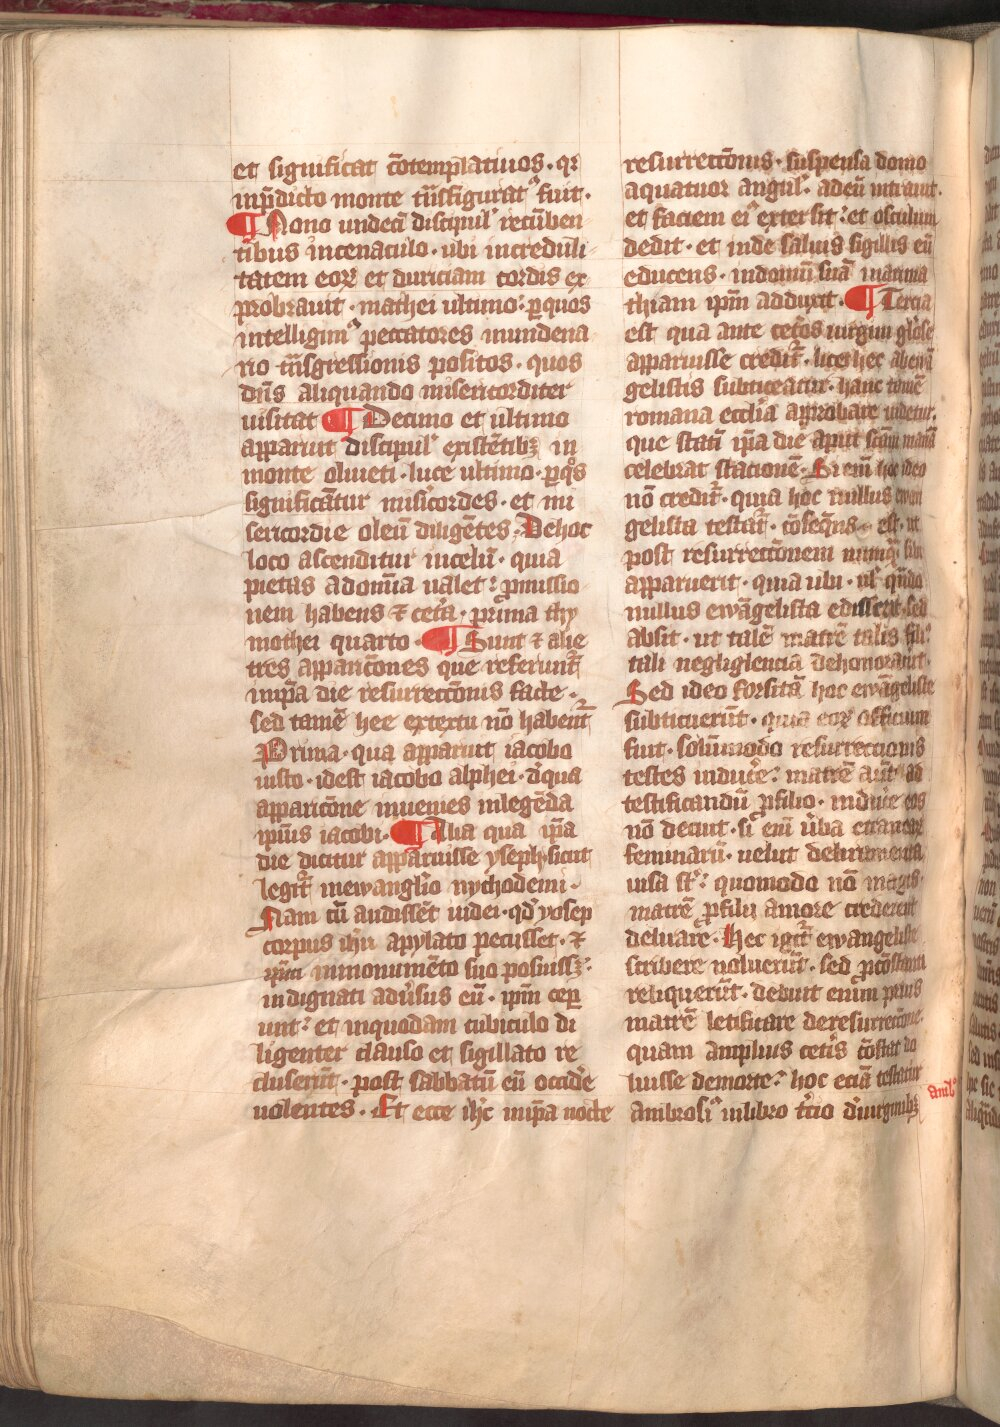 et significat cōtemplatiuos · qꝛ
inp̄dicto monte tn̄sfiguratꝰ fuit ·
¶ Nono undecī discipul' recūben
tibus incenaculo · ubi incredili
tatem eoꝝ et duriciam cordis ex
probrauit · mathei ultimo : ꝑquos
intelligimꝰ peccatores inmundena
rio tn̄sgressionis positos · quos
dn̄s aliquando misericorditer
uisitat ¶ Decimo et ultimo
apparuit discipul' existētibꝫ in
monte oliueti · luce ultimo · ꝑq̄s
significātur misicordes · et mi
sericordie oleū diligētes · Dehoc
loco ascenditur incelū · quia
pietas adomīa ualet : ꝓmissio
nem habens ⁊ cet̄a · prima thy
mothei quarto · ¶ Sunt ⁊ alie
tres appariciōnes que referunt̄
inip̄a die resurrectōnis facte ·
sed tamē hee extextu nō habent̄
Prima · qua apparuit iacobo
iusto · idest iacobo alphei · d'qua
apparicōne inuenies inlegēda
ip̄ius iacobi · ¶ Alia qua ip̄a
die dicitur apparuisse yseph · sicut
legit̄ inewanglīo nychodemi ·
Nam cū audissēt iudei · qd̓ yosep
corpus ih̄u apylato pecīsset · ⁊
inmonumēto suo posuissꝫ ·
indignati adūsus eū · ip̄m cep̄
unt : et inquodam cubiculo di
ligenter clauso et sigillato re
cluserūt · post sabbatū eū occid'e
uolentes · Et ecce ih̄c inip̄a nocte
resurrectōnis · suspensa domo
aquatuor angul' · adeū intrauit ·
et faciem eiꝰ extersit : et osculum
dedit · et inde saluis sigillis eū
educens · indomū suā inarima
thiam ip̄m adduxit · ¶ Tercia
est qua ante cet̄os uirgini gl'ose
apparuisse credit̄ · licet hec abewā
gelistis subticeatur · hanc tamē
romana eccl'ia approbare uidetur ·
que statī ip̄a die aput scām mariā
celebrat stationē · Si em̄ hoc ideo
nō credit̄ · quia hoc nullus ewan
gelista testat̄ · cōseq̄ns est · ut
post resurrectōnem nunq̄ sibi
apparuerit · quia ubi · ul' qn̄do
nullus ewāgelista edisserit · sed
absit · ut talē matrē talis filiꝰ
tali negligencia dehonorauit ·
Sed ideo forsitā hoc ewāgeliste
subticuerūt · quia eoꝝ officium
fuit · solūmodo resurrectionis
testes induc'e : matrē aūt ad
testificandū ꝓfilio · induc'e eos
nō decuit · si em̄ ūba extraneaꝝ
feminarū · uelut deliramenta
uisa st̄ : quomodo nō magis ·
matrē ꝓfilij amore crederent
deliuare · Hec igit̄ ewangeliste
scribere noluerūt · sed ꝓcōstanti
reliquerūt · debuit enim prius
matrē letificare deresurrectōne ·
quam amplius cet̄is cōstat do
luisse demorte : hoc eciā testatur
ambrosiꝰ inlibro t'cio d'uirginibꝫ
ambꝰ